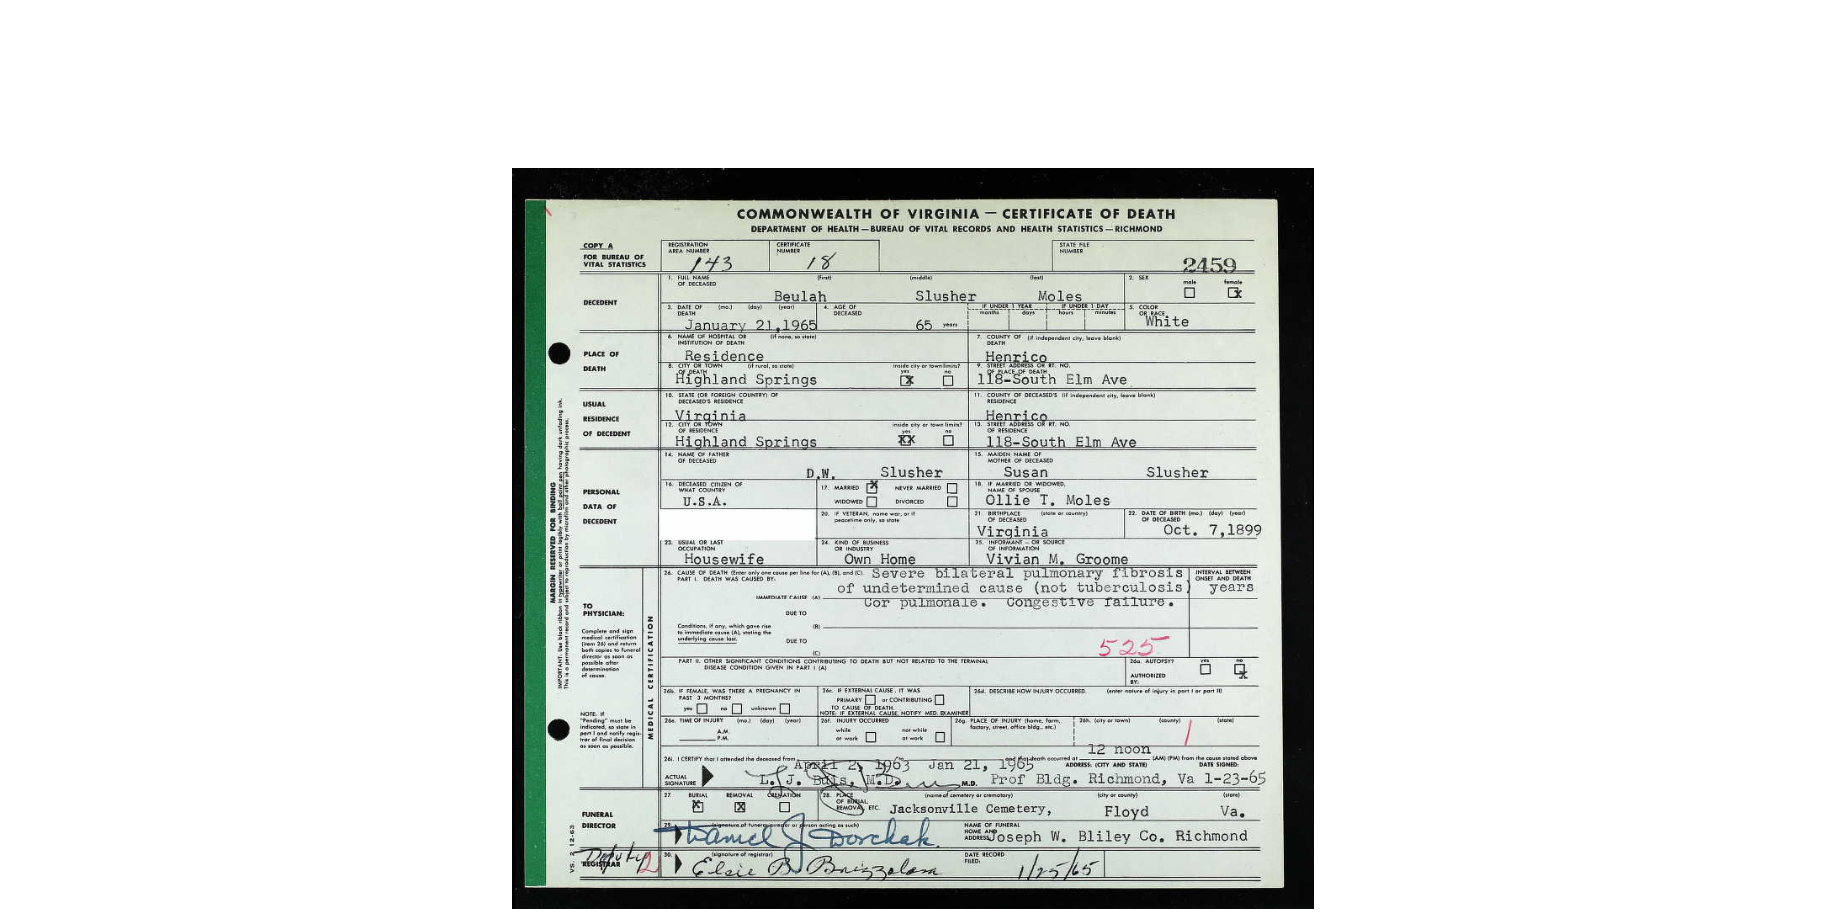 COMMONWEALTH OF VIRGINIA — CERTIFICATE OF DEATH
DEPARTMENT OF HEALTH—BUREAU OF VITAL RECORDS AND HEALTH STATISTICS—RICHMOND
COPY A
FOR BUREAU OF VITAL STATISTICS
REGISTRATION AREA NUMBER 143
CERTIFICATE NUMBER 18
STATE FILE NUMBER 2459
DECEDENT
1. FULL NAME OF DECEASED (first) (middle) (last)
Beulah Slusher Moles
2. SEX male female X
3. DATE OF DEATH (mo.) (day) (year)
January 21,1965
4. AGE OF DECEASED 65 years
IF UNDER 1 YEAR months days
IF UNDER 1 DAY hours minutes
5. COLOR OR RACE White
PLACE OF DEATH
6. NAME OF HOSPITAL OR INSTITUTION OF DEATH (if none, so state)
Residence
7. COUNTY OF DEATH (if independent city, leave blank)
Henrico
8. CITY OR TOWN OF DEATH (if rural, so state)
Highland Springs
inside city or town limits? yes X no
9. STREET ADDRESS OR RT. NO. OF PLACE OF DEATH
118-South Elm Ave
USUAL RESIDENCE OF DECEDENT
10. STATE (OR FOREIGN COUNTRY) OF DECEASED'S RESIDENCE
Virginia
11. COUNTY OF DECEASED'S RESIDENCE (if independent city, leave blank)
Henrico
12. CITY OR TOWN OF RESIDENCE
Highland Springs
inside city or town limits? yes XX no
13. STREET ADDRESS OR RT. NO. OF RESIDENCE
118-South Elm Ave
PERSONAL DATA OF DECEDENT
14. NAME OF FATHER OF DECEASED
D.W. Slusher
15. MAIDEN NAME OF MOTHER OF DECEASED
Susan Slusher
16. DECEASED CITIZEN OF WHAT COUNTRY
U.S.A.
17. MARRIED X NEVER MARRIED
WIDOWED DIVORCED
18. IF MARRIED OR WIDOWED, NAME OF SPOUSE
Ollie T. Moles
20. IF VETERAN, name war, or if peacetime only, so state
21. BIRTHPLACE OF DECEASED (state or country)
Virginia
22. DATE OF BIRTH OF DECEASED (mo.) (day) (year)
Oct. 7,1899
23. USUAL OR LAST OCCUPATION
Housewife
24. KIND OF BUSINESS OR INDUSTRY
Own Home
25. INFORMANT — OR SOURCE OF INFORMATION
Vivian M. Groome
MARGIN RESERVED FOR BINDING
TO PHYSICIAN:
Complete and sign medical certification (item 26) and return both copies to funeral director as soon as possible after determination of cause.
NOTE: If "Pending" must be indicated, so state in part I and notify registrar of final decision as soon as possible.
MEDICAL CERTIFICATION
26. CAUSE OF DEATH (Enter only one cause per line for (A), (B), and (C).
PART I. DEATH WAS CAUSED BY:
IMMEDIATE CAUSE (A)
Severe bilateral pulmonary fibrosis
of undetermined cause (not tuberculosis)
Cor pulmonale. Congestive failure.
INTERVAL BETWEEN ONSET AND DEATH
years
DUE TO (B)
Conditions, if any, which gave rise to immediate cause (A), stating the underlying cause last.
DUE TO (C)
525
PART II. OTHER SIGNIFICANT CONDITIONS CONTRIBUTING TO DEATH BUT NOT RELATED TO THE TERMINAL DISEASE CONDITION GIVEN IN PART I (A)
26a. AUTOPSY? yes no X
AUTHORIZED BY:
26b. IF FEMALE, WAS THERE A PREGNANCY IN PAST 3 MONTHS?
yes no unknown
26c. IF EXTERNAL CAUSE, IT WAS
PRIMARY or CONTRIBUTING
TO CAUSE OF DEATH.
NOTE: IF EXTERNAL CAUSE, NOTIFY MED. EXAMINER
26d. DESCRIBE HOW INJURY OCCURRED. (enter nature of injury in part I or part II)
26e. TIME OF INJURY (mo.) (day) (year)
A.M.
P.M.
26f. INJURY OCCURRED
while at work not while at work
26g. PLACE OF INJURY (home, farm, factory, street, office bldg., etc.)
26h. (city or town) (county) (state)
26i. I CERTIFY that I attended the deceased from April 2, 1963 Jan 21, 1965 and that death occurred at 12 noon (AM) (PM) from the cause stated above
ACTUAL SIGNATURE
M.D.
ADDRESS: (CITY AND STATE) DATE SIGNED:
Prof Bldg. Richmond, Va 1-23-65
FUNERAL DIRECTOR
27. BURIAL X REMOVAL X CREMATION
28. PLACE OF BURIAL, REMOVAL, ETC. (name of cemetery or crematory) (city or county) (state)
Jacksonville Cemetery, Floyd Va.
29. (signature of funeral director or person acting as such)
Daniel J Dorchak.
NAME OF FUNERAL HOME AND ADDRESS
Joseph W. Bliley Co. Richmond
Deputy
REGISTRAR
30. (signature of registrar)
DATE RECORD FILED: 1/25/65